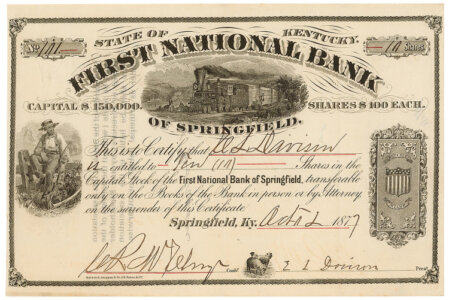 STATE OF KENTUCKY.
No. 101
10 Shares
FIRST NATIONAL BANK
CAPITAL $ 150,000.
SHARES $ 100 EACH.
OF SPRINGFIELD.
This is to Certify that E L Davison
is entitled to Ten (10) Shares in the
Capital Stock of the First National Bank of Springfield, transferable
only on the Books of the Bank in person or by Attorney
on the surrender of this Certificate.
Springfield, Ky. 1877
Cash'r
E L Davison Prest